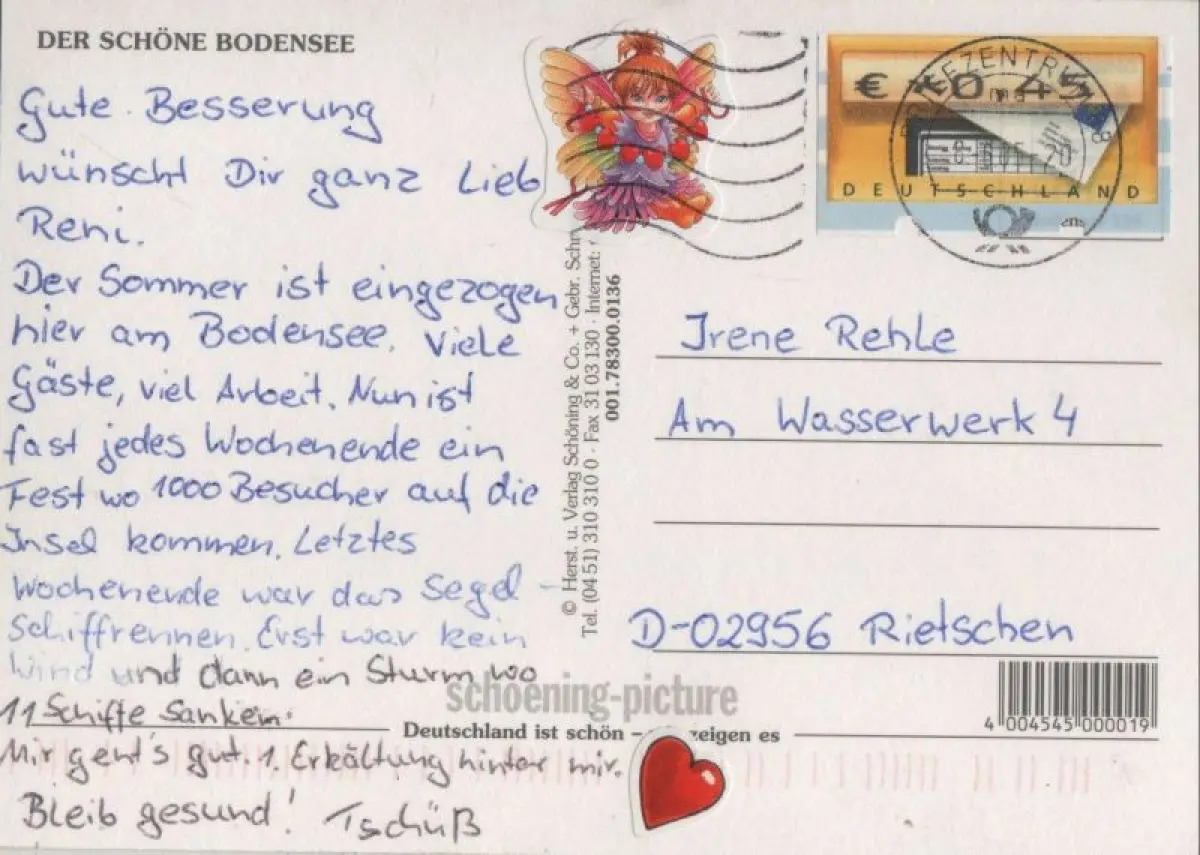 DER SCHÖNE BODENSEE
Gute Besserung
wünscht Dir ganz Lieb
Reni.
Der Sommer ist eingezogen
hier am Bodensee. Viele
Gäste, viel Arbeit. Nun ist
fast jedes Wochenende ein
Fest wo 1000 Besucher auf die
Insel kommen. Letztes
Wochenende war das Segel-
schiffrennen. Erst war kein
Wind und dann ein Sturm wo
11 Schiffe sanken.
Mir geht's gut. 1. Erkältung hinter mir.
Bleib gesund! Tschüß
© Herst. u. Verlag Schöning & Co. + Gebr.
Tel. (04 51) 310 310 0 · Fax 31 03 130 · Internet:
001.78300.0136
€ 0,45
DEUTSCHLAND
Irene Rehle
Am Wasserwerk 4
D-02956 Rietschen
schoening-picture
Deutschland ist schön – zeigen es
4 004545 000019